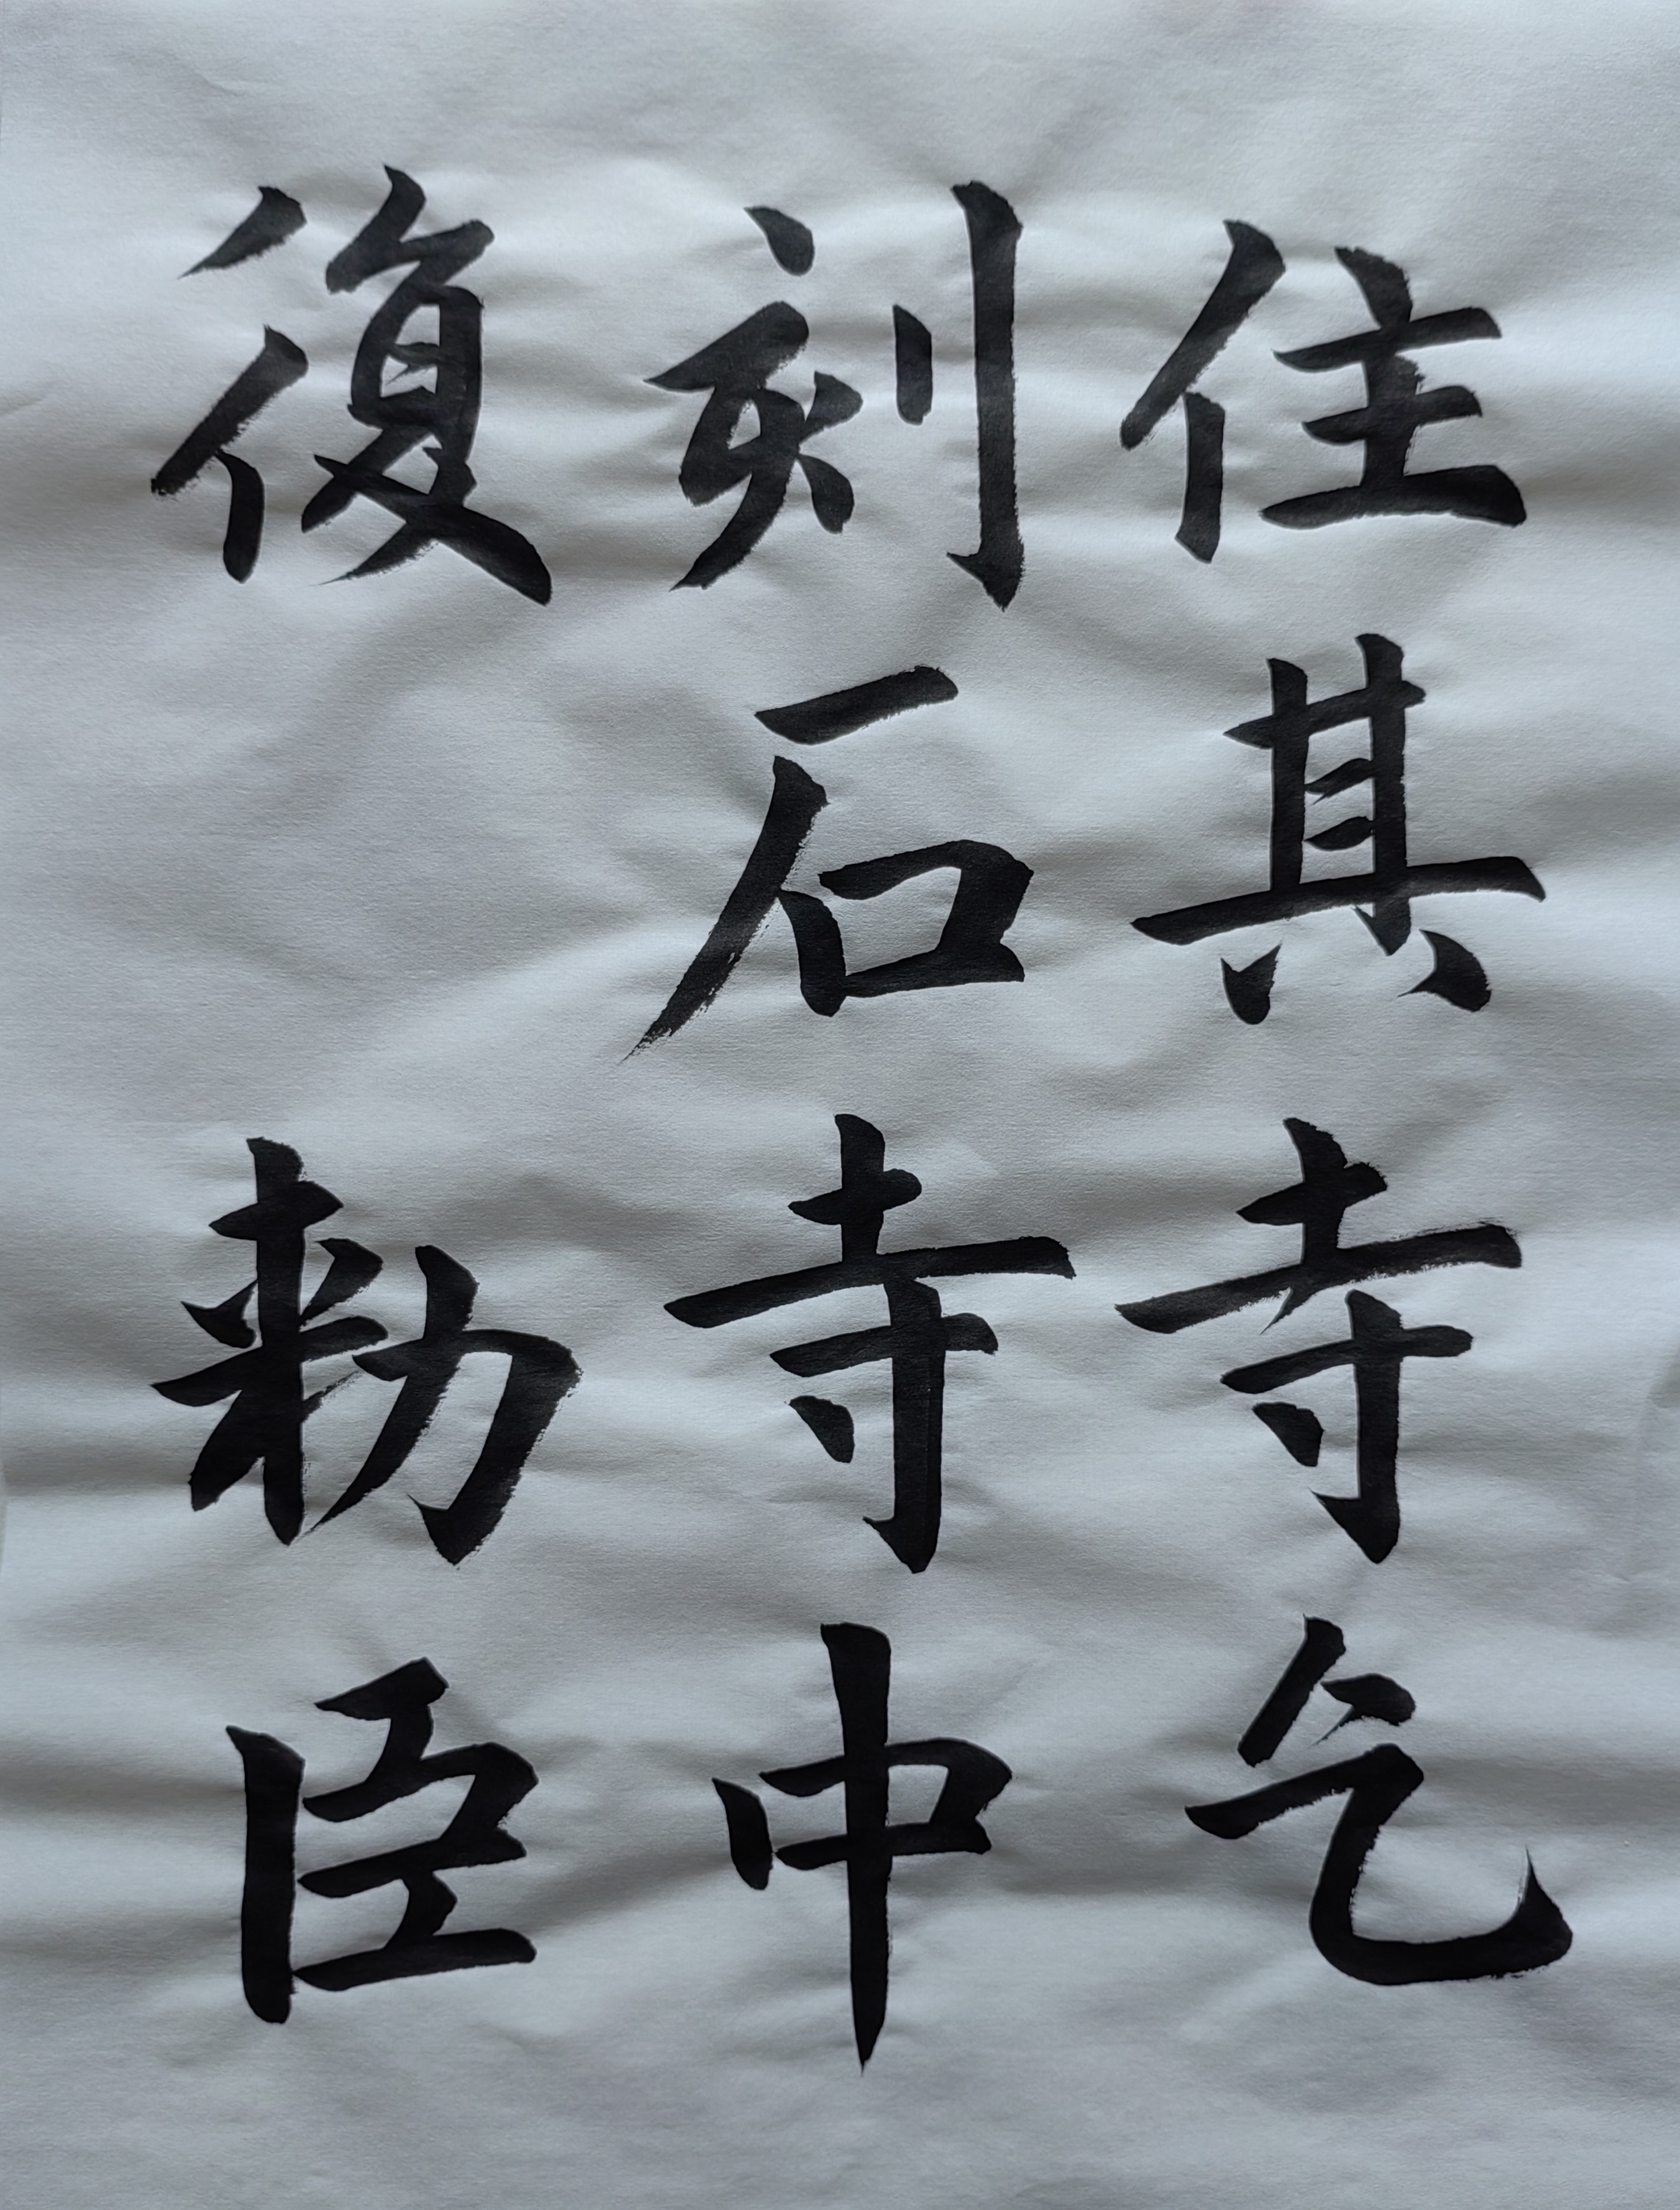 住其寺乞
刻石寺中
復 勑臣